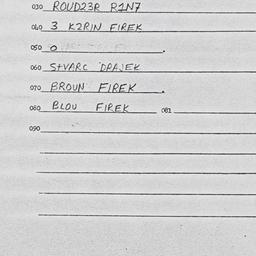 030 ROUD23R R1N7
040 3 K2RIN FIREK
050 O
060 STVARC DRAJEK
070 BROUN FIREK .
080 BLOU FIREK 081
090